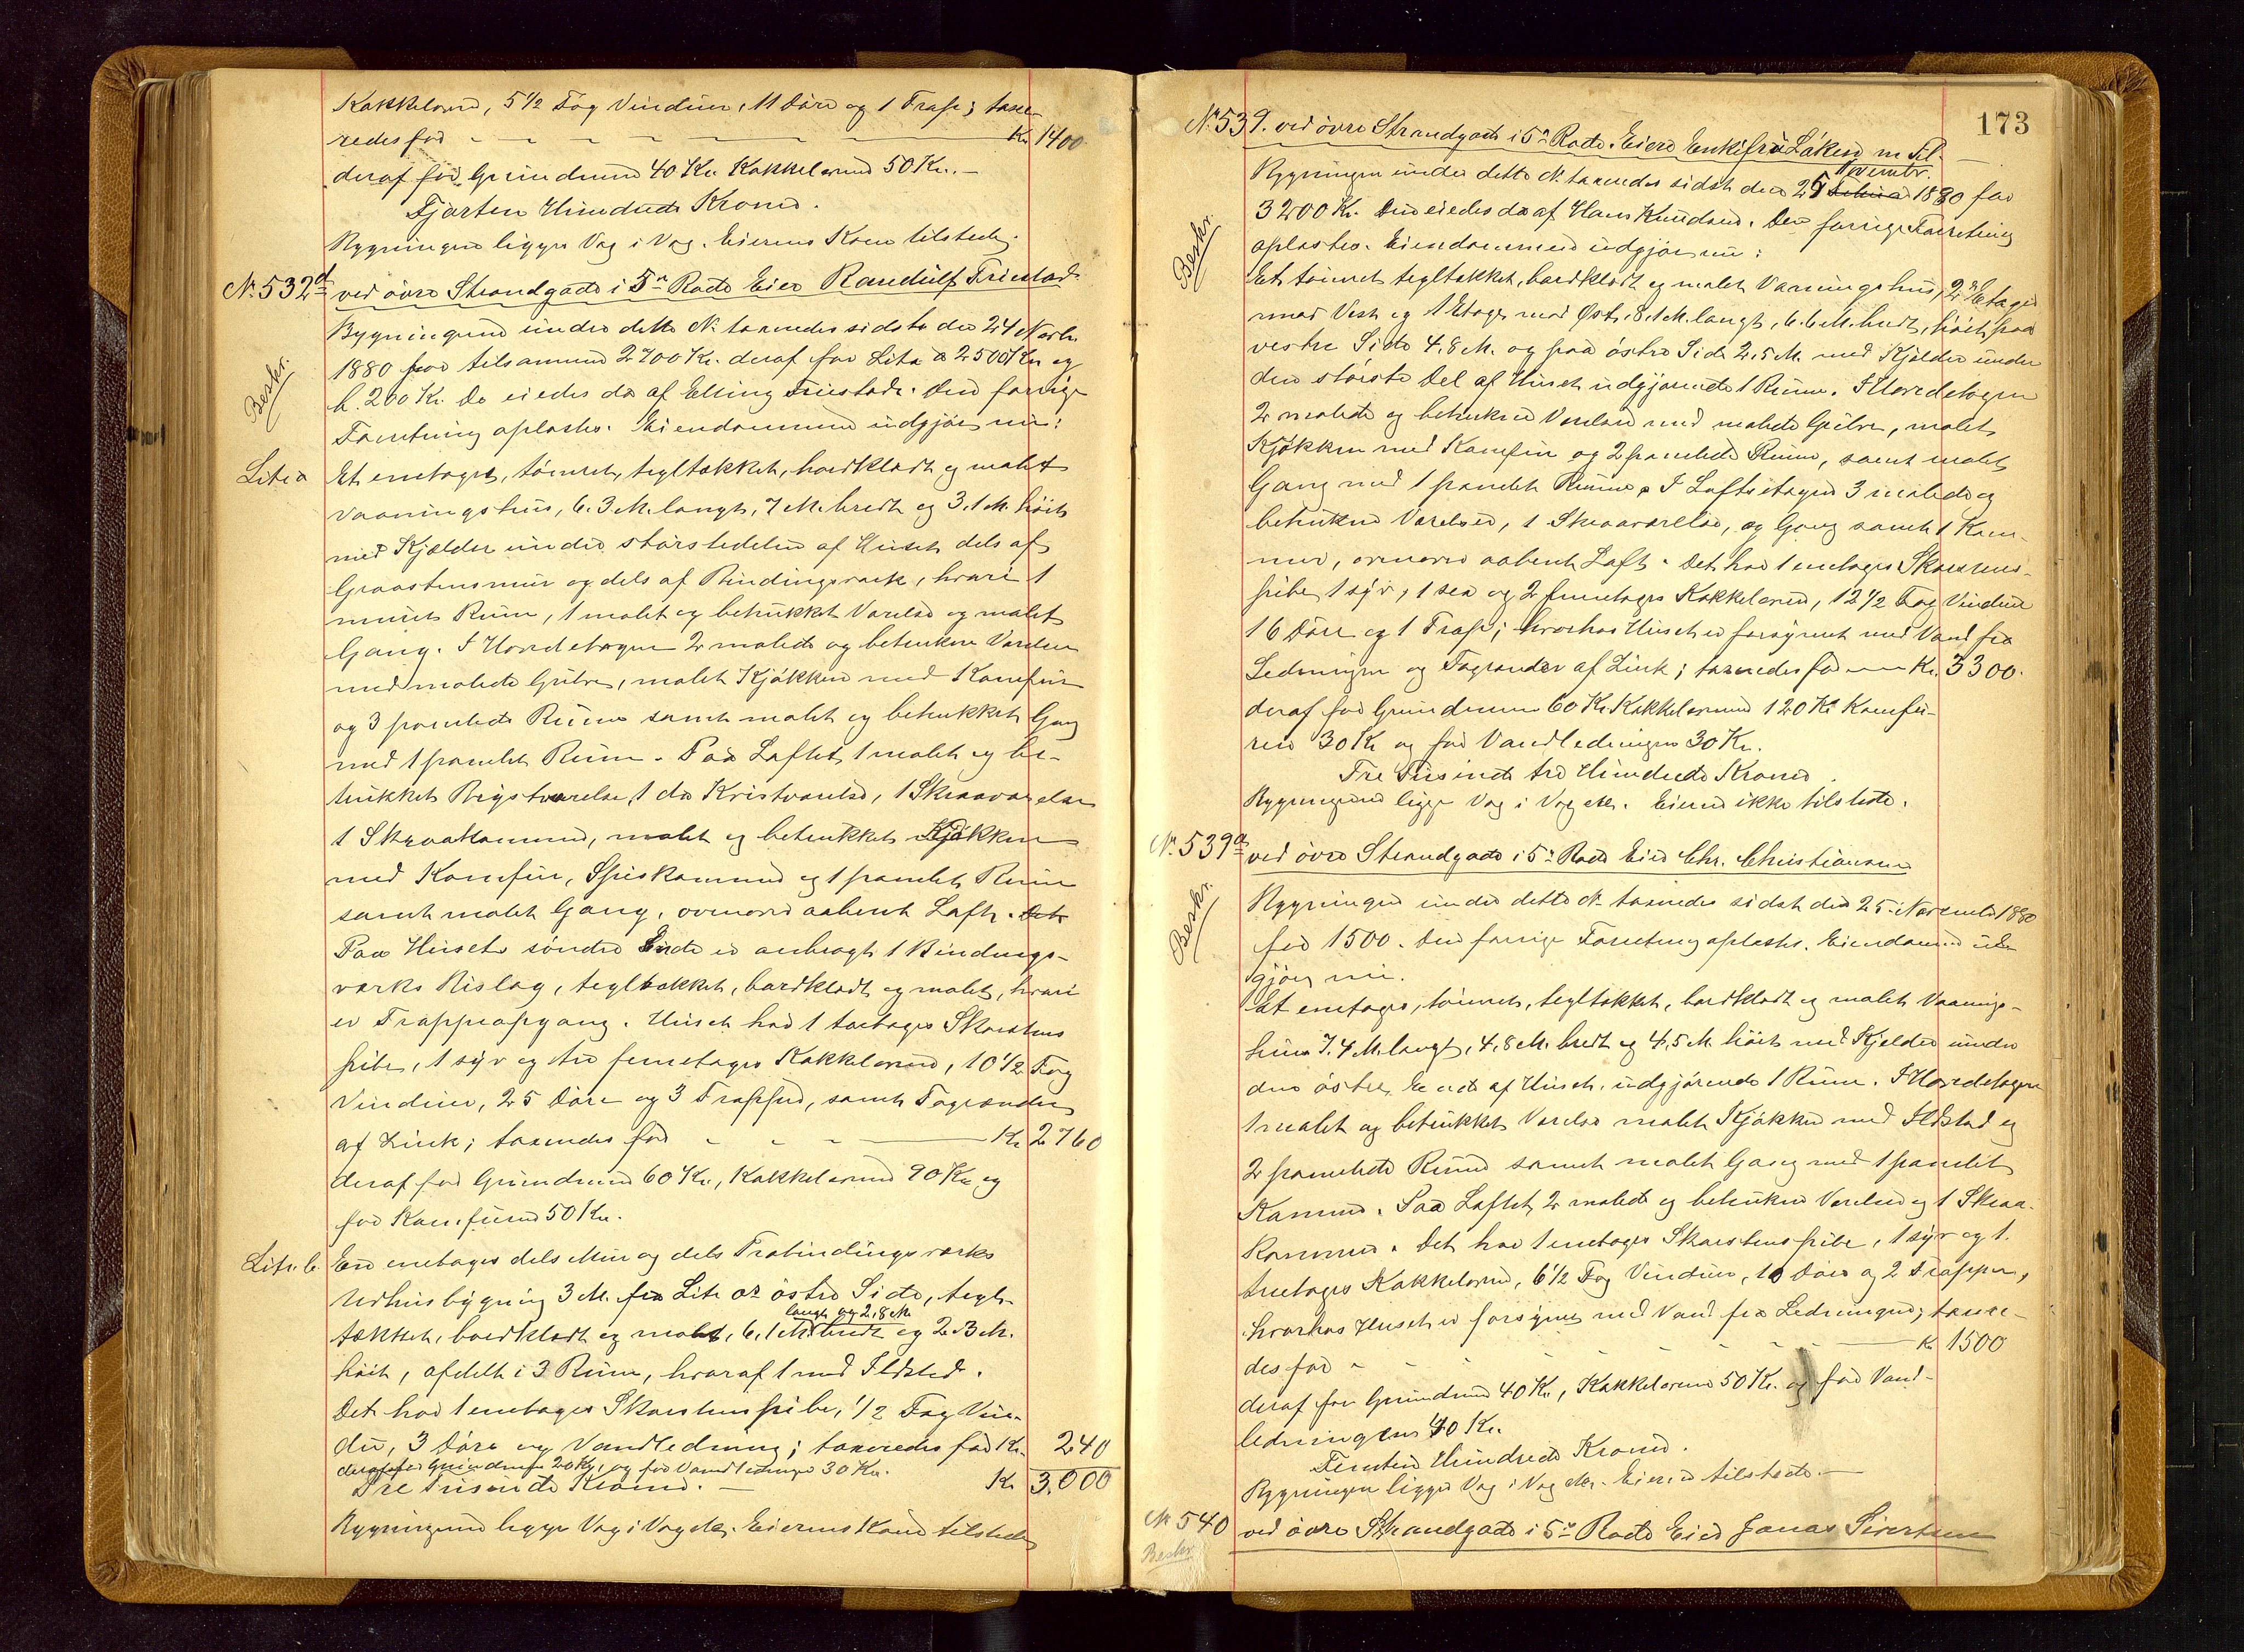 Kakkelovne, 5 1/2 Fag Vinduer, 11 Döre og 1 Trap; taxe-
redes for - - - - Kr. 1400
deraf for Grundmur 40 Kr. Kakkelovne 50 Kr. —
Fjorten Hundrede Kroner.
Bygningen ligger Væg i Væg. Eierens Kone tilstede.
No. 532d ved övre Strandgade i 5te Rode Eier Randulf Friestad
Bygningerne under dette No. taxeredes sidste den 24 Novbr.
Beskr.
1880 for tilsammen 2700 Kr. deraf for Litr a 2500 Kr. og
b. 200 Kr. De eiedes da af Elling Friestad. Den forrige
Forretning oplæstes. Eiendommene udgjör nu:
Litr a Et enetages, tömret, tegltækket, bordklædt og malet
Vaaningshus, 6.3 M. langt, 7 M. bredt og 3.1 M. höit
med Kjælder under störstedelen af Huset dels af
Graastensmur og dels af Bindingsværk, hvori 1
muret Rum, 1 malet og betrukket Værelse og malet
Gang. I Hovedetagen 2 malede og betrukne Værelser
med malede Gulve, malet Kjökken med Komfur
og 3 panelede Rum samt malet og betrukket Gang
med 1 panelet Rum. Paa Loftet 1 malet og be-
trukket Brystværelse, 1 do Kvistværelse, 1 Skraaværelse
1 Skraakammer, malet og betrukket Kjökken
med Komfur, Spiskammer og 1 panelet Rum
samt malet Gang, ovenover aabent Loft. Det
Paa Husets söndre Ende er anbragt 1 Bindings-
værks Bislag, tegltækket, bordklædt og malet, hvori
er Trappeopgang. Huset har 1 toetages Skorstens
pibe, 1 syv og tre femetages Kakkelovne, 10 1/2 Fag
Vinduer, 25 Döre og 3 Trapper, samt Tagrender
af Zink; taxeredes for - - - Kr. 2760
deraf for Grundmur 60 Kr., Kakkelovne 90 Kr. og
for Komfurene 50 Kr.
Litr. b. En enetages dels Mur og dels Træbindingsværks
Udhusbygning 3 M. fra Litr as östre Side, tegl-
langt og 2,8 M.
tækket, bordklædt og malet, 6,1 M. bredt og 2.3 M.
höit, afdelt i 3 Rum, hvoraf 1 med Ildsted.
Det har 1 enetages Skorstenspibe, 1/2 Fag Vin-
du, 3 Döre og Vandledning; taxeredes for Kr. 240
deraf for Grundmur 20 Kr. og for Vandledningen 30 Kr.
Tre Tusinde Kroner. — Kr. 3,000
Bygningerne ligger Væg i Væg etc. Eierens Kone tilstede
173
No. 539. ved övre Strandgade i 5te Rode. Eier Enkefru Laken m Fl. —
Novembr.
Bygningen under dette No. taxeredes sidst den 25 1880 for
Beskr.
3200 Kr. Den eiedes da af Hans Knudsen. Den forrige Forretning
oplæstes. Eiendommen udgjör nu:
Et tömret tegltækket, bordklædt og malet Vaaningshus, 2 Etager
mod Vest og 1 Etage mod Öst. 8,1 M. langt, 6.6 M. bredt, höit paa
vestre Side 4.8 M. og paa östre Side 2.5 M. med Kjælder under
den störste Del af Huset udgjörende 1 Rum. I Hovedetagen
2 malede og betrukne Værelser med malede Gulve, malet
Kjökken med Komfur og 2 panelede Rum, samt malet
Gang med 1 panelet Rum. I Loftsetagen 3 malede og
betrukne Værelser, 1 Skraaværelse, og Gang samt 1 Kam-
mer, ovenover aabent Loft. Det har 1 enetages Skorstens-
pibe, 1 syv, 1 sex og 2 femetages Kakkelovne, 12 1/2 Fag Vinduer
16 Döre og 1 Trap; hvorhos Huset er forsynet med Vand fra
Ledningen og Tagrender af Zink; taxeredes for — Kr. 3300.
deraf for Grundmur 60 Kr. Kakkelovne 120 Kr. Komfu-
ren 30 Kr og for Vandledningen 30 Kr.
Tre Tusinde tre Hundrede Kroner.
Bygningerne ligge Væg i Væg etc. Eieren ikke tilstede.
No. 539a ved övre Strandgade i 5te Rode Eier Chr. Christiansen
Bygningen under dette No. taxeredes sidst den 25 Novembr 1880
Beskr.
for 1500. Den forrige Forretning oplæstes. Eiendommen ud-
gjör nu.
Et enetages, tömret, tegltækket, bordklædt og malet Vaanings-
hus 7.4 M. langt, 4,8 M. bredt og 4,5 M. höit med Kjelder under
den östre Ende af Huset, udgjörende 1 Rum. I Hovedetagen
1 malet og betrukket Værelse malet Kjökken med Ildsted og
2 panelede Rum samt malet Gang med 1 panelet
Kammer. Paa Loftet 2 malede og betrukne Værelser og 1 Skraa-
kammer. Det har 1 enetages Skorstenspibe, 1 syv og 1.
treetages Kakkelovne, 6 1/2 Fag Vinduer, 10 Döre og 2 Trapper,
hvorhos Huset er forsynet med Vand fra Ledningen; taxere-
des for - - - - - Kr 1500
deraf for Grundmur 40 Kr., Kakkelovne 50 Kr. og for Vand-
ledningen 40 Kr.
Femten Hundrede Kroner.
Bygningen ligger Væg i Væg etc. Eieren tilstede. —
No 540 ved övre Strandgade i 5te Rode Eier Jonas Sivertsen
Beskr